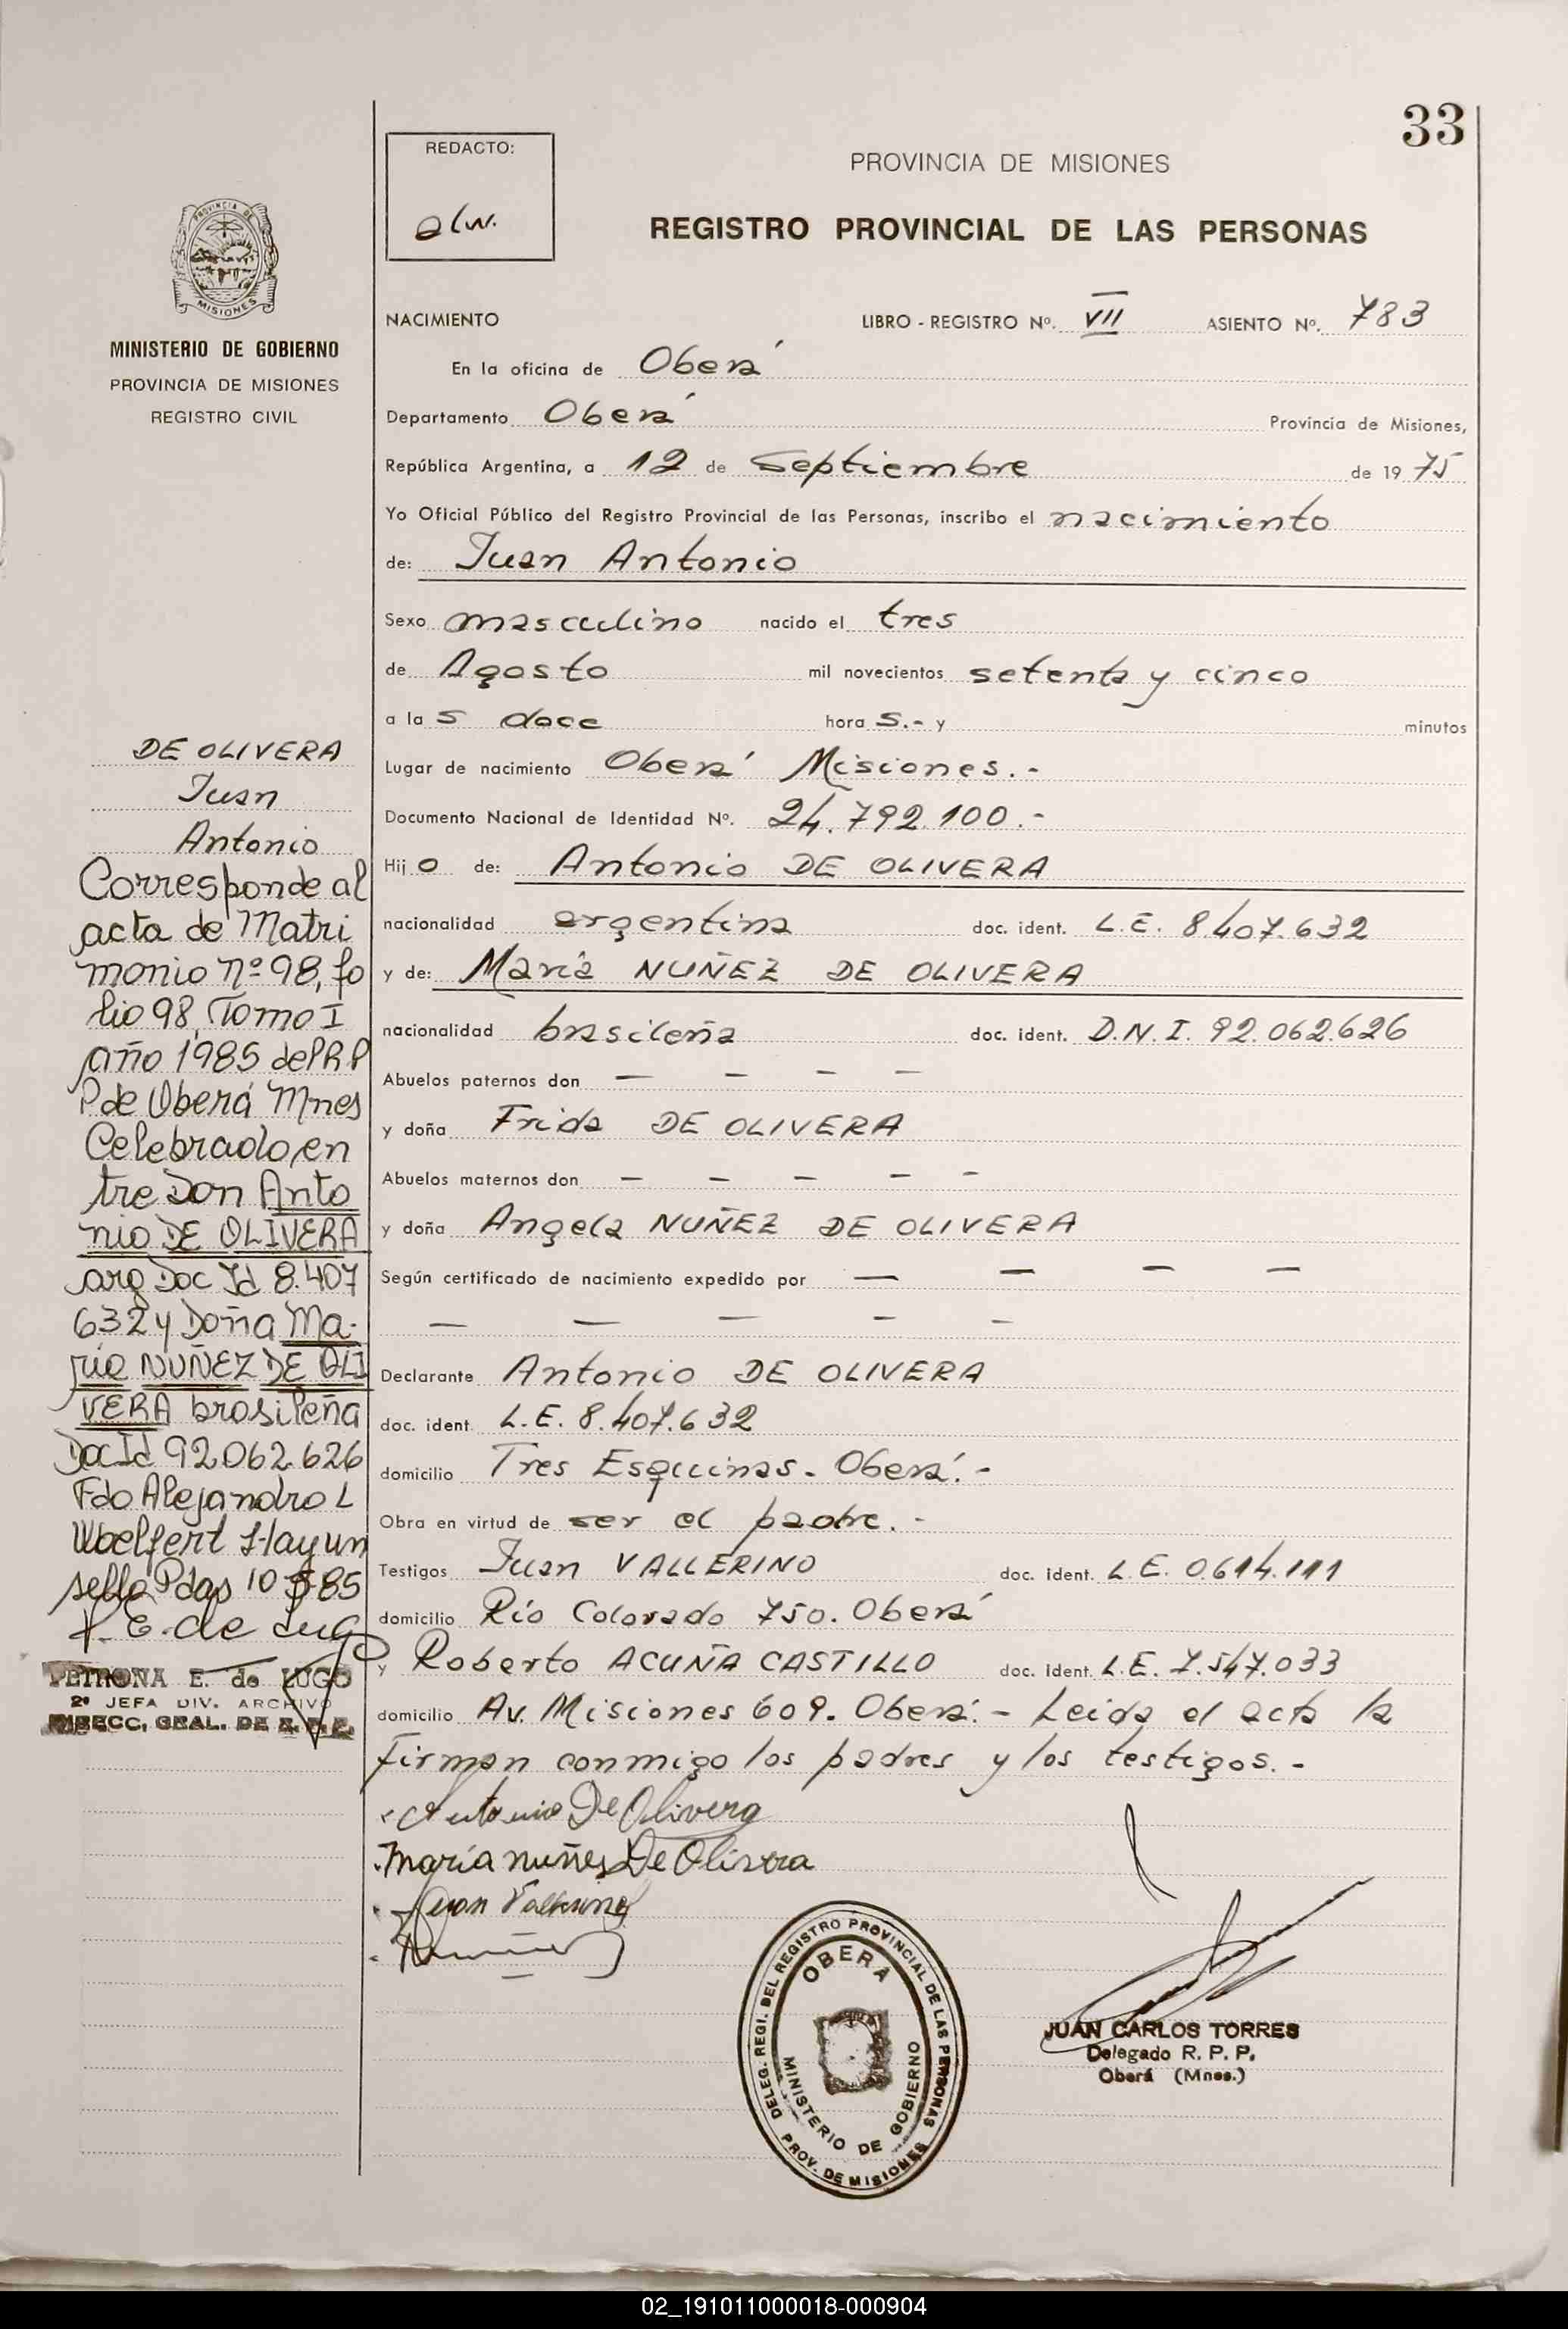 33
REDACTO:
alw.
PROVINCIA DE MISIONES
REGISTRO PROVINCIAL DE LAS PERSONAS
PROVINCIA DE
MISIONES
MINISTERIO DE GOBIERNO
PROVINCIA DE MISIONES
REGISTRO CIVIL
NACIMIENTO LIBRO - REGISTRO Nº. VII ASIENTO Nº. 783
En la oficina de Oberá
Departamento Oberá Provincia de Misiones,
República Argentina, a 12 de Septiembre de 1975
Yo Oficial Público del Registro Provincial de las Personas, inscribo el nacimiento
de: Juan Antonio
Sexo masculino nacido el tres
de Agosto mil novecientos setenta y cinco
a las doce horas.- y minutos
Lugar de nacimiento Oberá Misiones.-
Documento Nacional de Identidad Nº. 24.792.100.-
Hijo de: Antonio DE OLIVERA
nacionalidad argentina doc. ident. L.E. 8.407.632
y de: María NUÑEZ DE OLIVERA
nacionalidad brasileña doc. ident. D.N.I. 92.062.626
Abuelos paternos don — — — —
y doña Frida DE OLIVERA
Abuelos maternos don — — — — —
y doña Angela NUÑEZ DE OLIVERA
Según certificado de nacimiento expedido por — — — —
— — — — —
Declarante Antonio DE OLIVERA
doc. ident. L.E. 8.407.632
domicilio Tres Esquinas. Oberá.-
Obra en virtud de ser el padre.-
Testigos Juan VALLERINO doc. ident. L.E. 0.614.111
domicilio Río Colorado 750. Oberá
y Roberto ACUÑA CASTILLO doc. ident. L.E. 7.547.033
domicilio Av. Misiones 609. Oberá.- Leida el acta la
firman conmigo los padres y los testigos.-
Antonio De Olivera
María nuñes De Olivera
Juan Vallerino
DE OLIVERA
Juan
Antonio
Corresponde al
acta de Matri
monio nº 98, fo
lio 98, Tomo I
año 1985 del R P
P de Oberá Mnes
Celebrado en
tre Don Anto
nio DE OLIVERA
arg Doc Id 8.407
632 y Doña Ma-
ria NUÑEZ DE OLI
VERA brasileña
Doc Id 92.062.626
Fdo Alejandro L
Woelfert Hay un
sello Pdas 10 5 85
P. E. de Lugo
PETRONA E. de LUGO
2º JEFA DIV. ARCHIVO
DIRECC. GRAL. DE R. P. P.
DELEG. REGI. DEL REGISTRO PROVINCIAL DE LAS PERSONAS
OBERA
MINISTERIO DE GOBIERNO
PROV. DE MISIONES
JUAN CARLOS TORRES
Delegado R. P. P.
Oberá (Mnes.)
02_191011000018-000904